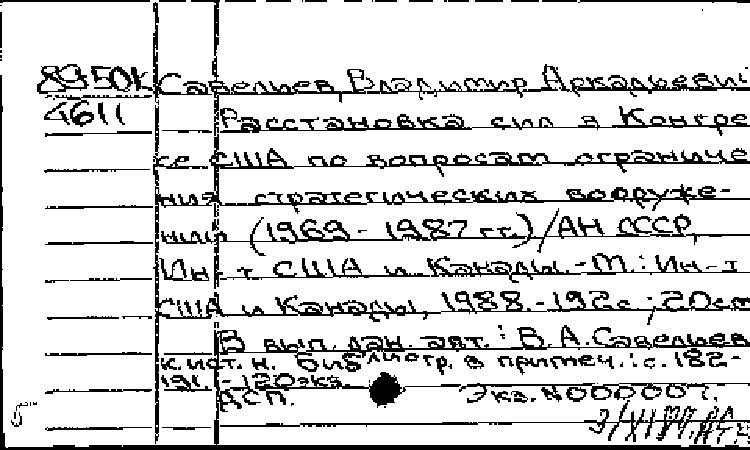 8950К Савельев, Владимир Аркадьевич
4611 Расстановка сил в Конгре
се США по вопросам ограниче
ния стратегических вооруже-
ний (1969 - 1987 гг.) / АН СССР,
Ин-т США и Канады. - М.: Ин-т
США и Канады, 1988. - 192с ; 20см
В вып. дан. авт.: В.А. Савельев
к.ист.н. Библиогр. в примеч.: с. 182-
191. - 120экз.
ДСП. Экз. N000007.